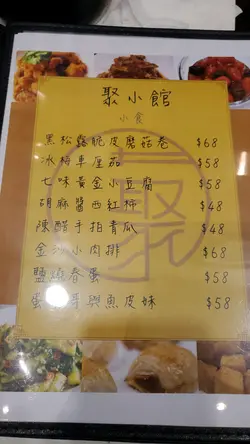 聚小館
小食
黑松露脆皮蘑菇卷 $68
冰梅車厘茄 $58
七味黃金小豆腐 $58
胡麻醬西紅柿 $48
陳醋手拍青瓜 $48
金沙小肉排 $68
鹽燒春蛋 $58
蛋黃哥與魚皮妹 $58